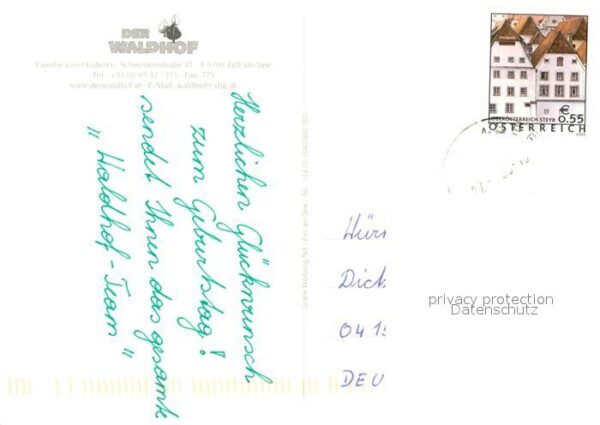 DER
WALDHOF
Familie Josef Lederer · Schmittenstraße 47 · A-5700 Zell am See
Tel. +43 (0) 65 42 / 775 · Fax: 775
www.derwaldhof.at · E-Mail: waldhof@sbg.at
Herzlichen Glückwunsch
zum Geburtstag!
sendet Ihnen das gesamte
„Waldhof-Team"
Zell am See
OBERÖSTERREICH STEYR
€
0.55
ÖSTERREICH
Hür
Dick
04 15
DEU
privacy protection
Datenschutz